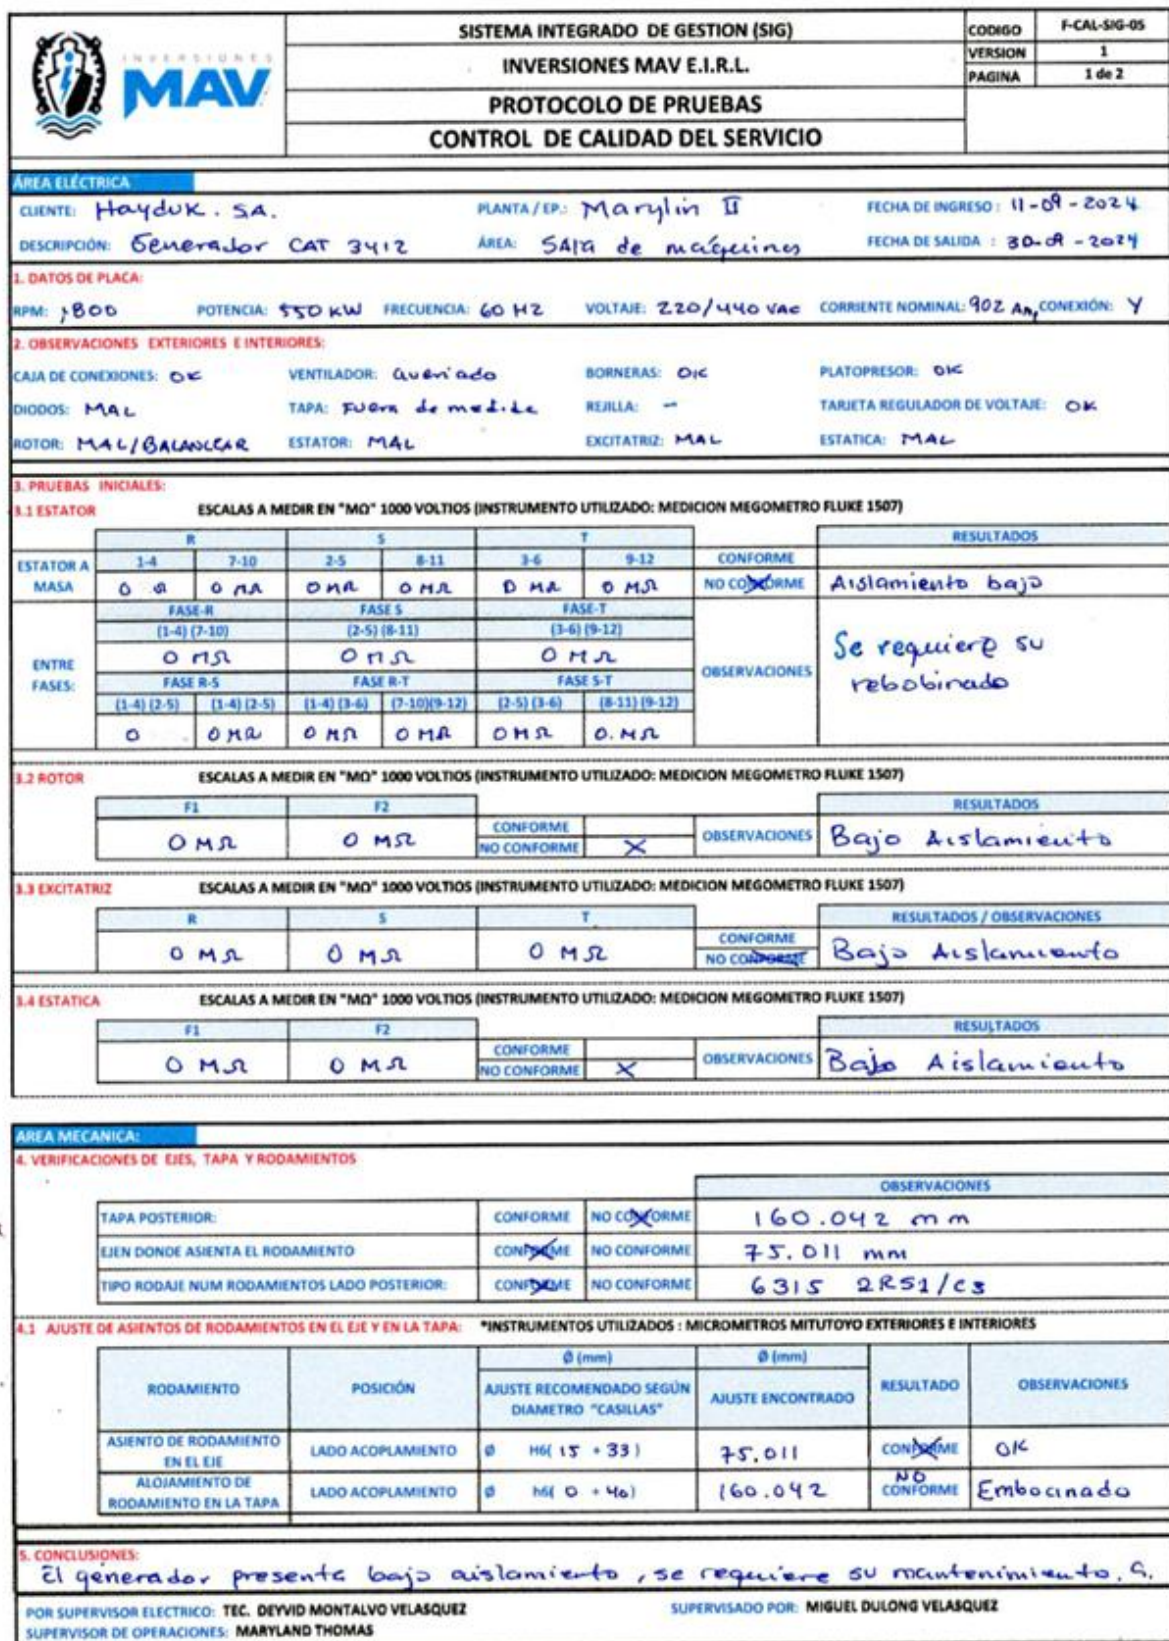 INVERSIONES
MAV
SISTEMA INTEGRADO DE GESTION (SIG)
INVERSIONES MAV E.I.R.L.
PROTOCOLO DE PRUEBAS
CONTROL DE CALIDAD DEL SERVICIO
CODIGO F-CAL-SIG-05
VERSION 1
PAGINA 1 de 2
ÁREA ELÉCTRICA
CLIENTE: Hayduk. SA. PLANTA / EP.: Marylin II FECHA DE INGRESO: 11-09-2024
DESCRIPCIÓN: Generador CAT 3412 ÁREA: SAla de maquinas FECHA DE SALIDA: 30-09-2024
1. DATOS DE PLACA:
RPM: 1800 POTENCIA: 550 KW FRECUENCIA: 60 HZ VOLTAJE: 220/440 VAC CORRIENTE NOMINAL: 902 Am, CONEXIÓN: Y
2. OBSERVACIONES EXTERIORES E INTERIORES:
CAJA DE CONEXIONES: OK VENTILADOR: Quemado BORNERAS: OK PLATOPRESOR: OK
DIODOS: MAL TAPA: Fuera de medida REJILLA: - TARJETA REGULADOR DE VOLTAJE: OK
ROTOR: MAL/BALANCEAR ESTATOR: MAL EXCITATRIZ: MAL ESTATICA: MAL
3. PRUEBAS INICIALES:
3.1 ESTATOR ESCALAS A MEDIR EN "MΩ" 1000 VOLTIOS (INSTRUMENTO UTILIZADO: MEDICION MEGOMETRO FLUKE 1507)
R S T RESULTADOS
ESTATOR A MASA 1-4 7-10 2-5 8-11 3-6 9-12 CONFORME
0 Ω 0 MΩ 0 MΩ 0 MΩ 0 MΩ 0 MΩ NO CONFORME Aislamiento bajo
FASE-R FASE S FASE-T
(1-4) (7-10) (2-5) (8-11) (3-6) (9-12)
0 MΩ 0 MΩ 0 MΩ
ENTRE FASES: FASE R-S FASE R-T FASE S-T OBSERVACIONES Se requiere su rebobinado
(1-4) (2-5) (1-4) (2-5) (1-4) (3-6) (7-10)(9-12) (2-5) (3-6) (8-11) (9-12)
0 0 MΩ 0 MΩ 0 MΩ 0 MΩ 0.MΩ
3.2 ROTOR ESCALAS A MEDIR EN "MΩ" 1000 VOLTIOS (INSTRUMENTO UTILIZADO: MEDICION MEGOMETRO FLUKE 1507)
F1 F2 RESULTADOS
0 MΩ 0 MΩ CONFORME
NO CONFORME X OBSERVACIONES Bajo Aislamiento
3.3 EXCITATRIZ ESCALAS A MEDIR EN "MΩ" 1000 VOLTIOS (INSTRUMENTO UTILIZADO: MEDICION MEGOMETRO FLUKE 1507)
R S T RESULTADOS / OBSERVACIONES
0 MΩ 0 MΩ 0 MΩ CONFORME
NO CONFORME Bajo Aislamiento
3.4 ESTATICA ESCALAS A MEDIR EN "MΩ" 1000 VOLTIOS (INSTRUMENTO UTILIZADO: MEDICION MEGOMETRO FLUKE 1507)
F1 F2 RESULTADOS
0 MΩ 0 MΩ CONFORME
NO CONFORME X OBSERVACIONES Bajo Aislamiento
AREA MECANICA:
4. VERIFICACIONES DE EJES, TAPA Y RODAMIENTOS
OBSERVACIONES
TAPA POSTERIOR: CONFORME NO CONFORME 160.042 mm
EJEN DONDE ASIENTA EL RODAMIENTO CONFORME NO CONFORME 75.011 mm
TIPO RODAJE NUM RODAMIENTOS LADO POSTERIOR: CONFORME NO CONFORME 6315 2RS1/C3
4.1 AJUSTE DE ASIENTOS DE RODAMIENTOS EN EL EJE Y EN LA TAPA: *INSTRUMENTOS UTILIZADOS : MICROMETROS MITUTOYO EXTERIORES E INTERIORES
Ø (mm) Ø (mm)
RODAMIENTO POSICIÓN AJUSTE RECOMENDADO SEGÚN DIAMETRO "CASILLAS" AJUSTE ENCONTRADO RESULTADO OBSERVACIONES
ASIENTO DE RODAMIENTO EN EL EJE LADO ACOPLAMIENTO Ø H6( 15 + 33 ) 75.011 CONFORME OK
ALOJAMIENTO DE RODAMIENTO EN LA TAPA LADO ACOPLAMIENTO Ø h6( 0 + 40) 160.042 NO CONFORME Embocinado
5. CONCLUSIONES:
El generador presenta bajo aislamiento, se requiere su mantenimiento. G.
POR SUPERVISOR ELECTRICO: TEC. DEYVID MONTALVO VELASQUEZ SUPERVISADO POR: MIGUEL DULONG VELASQUEZ
SUPERVISOR DE OPERACIONES: MARYLAND THOMAS